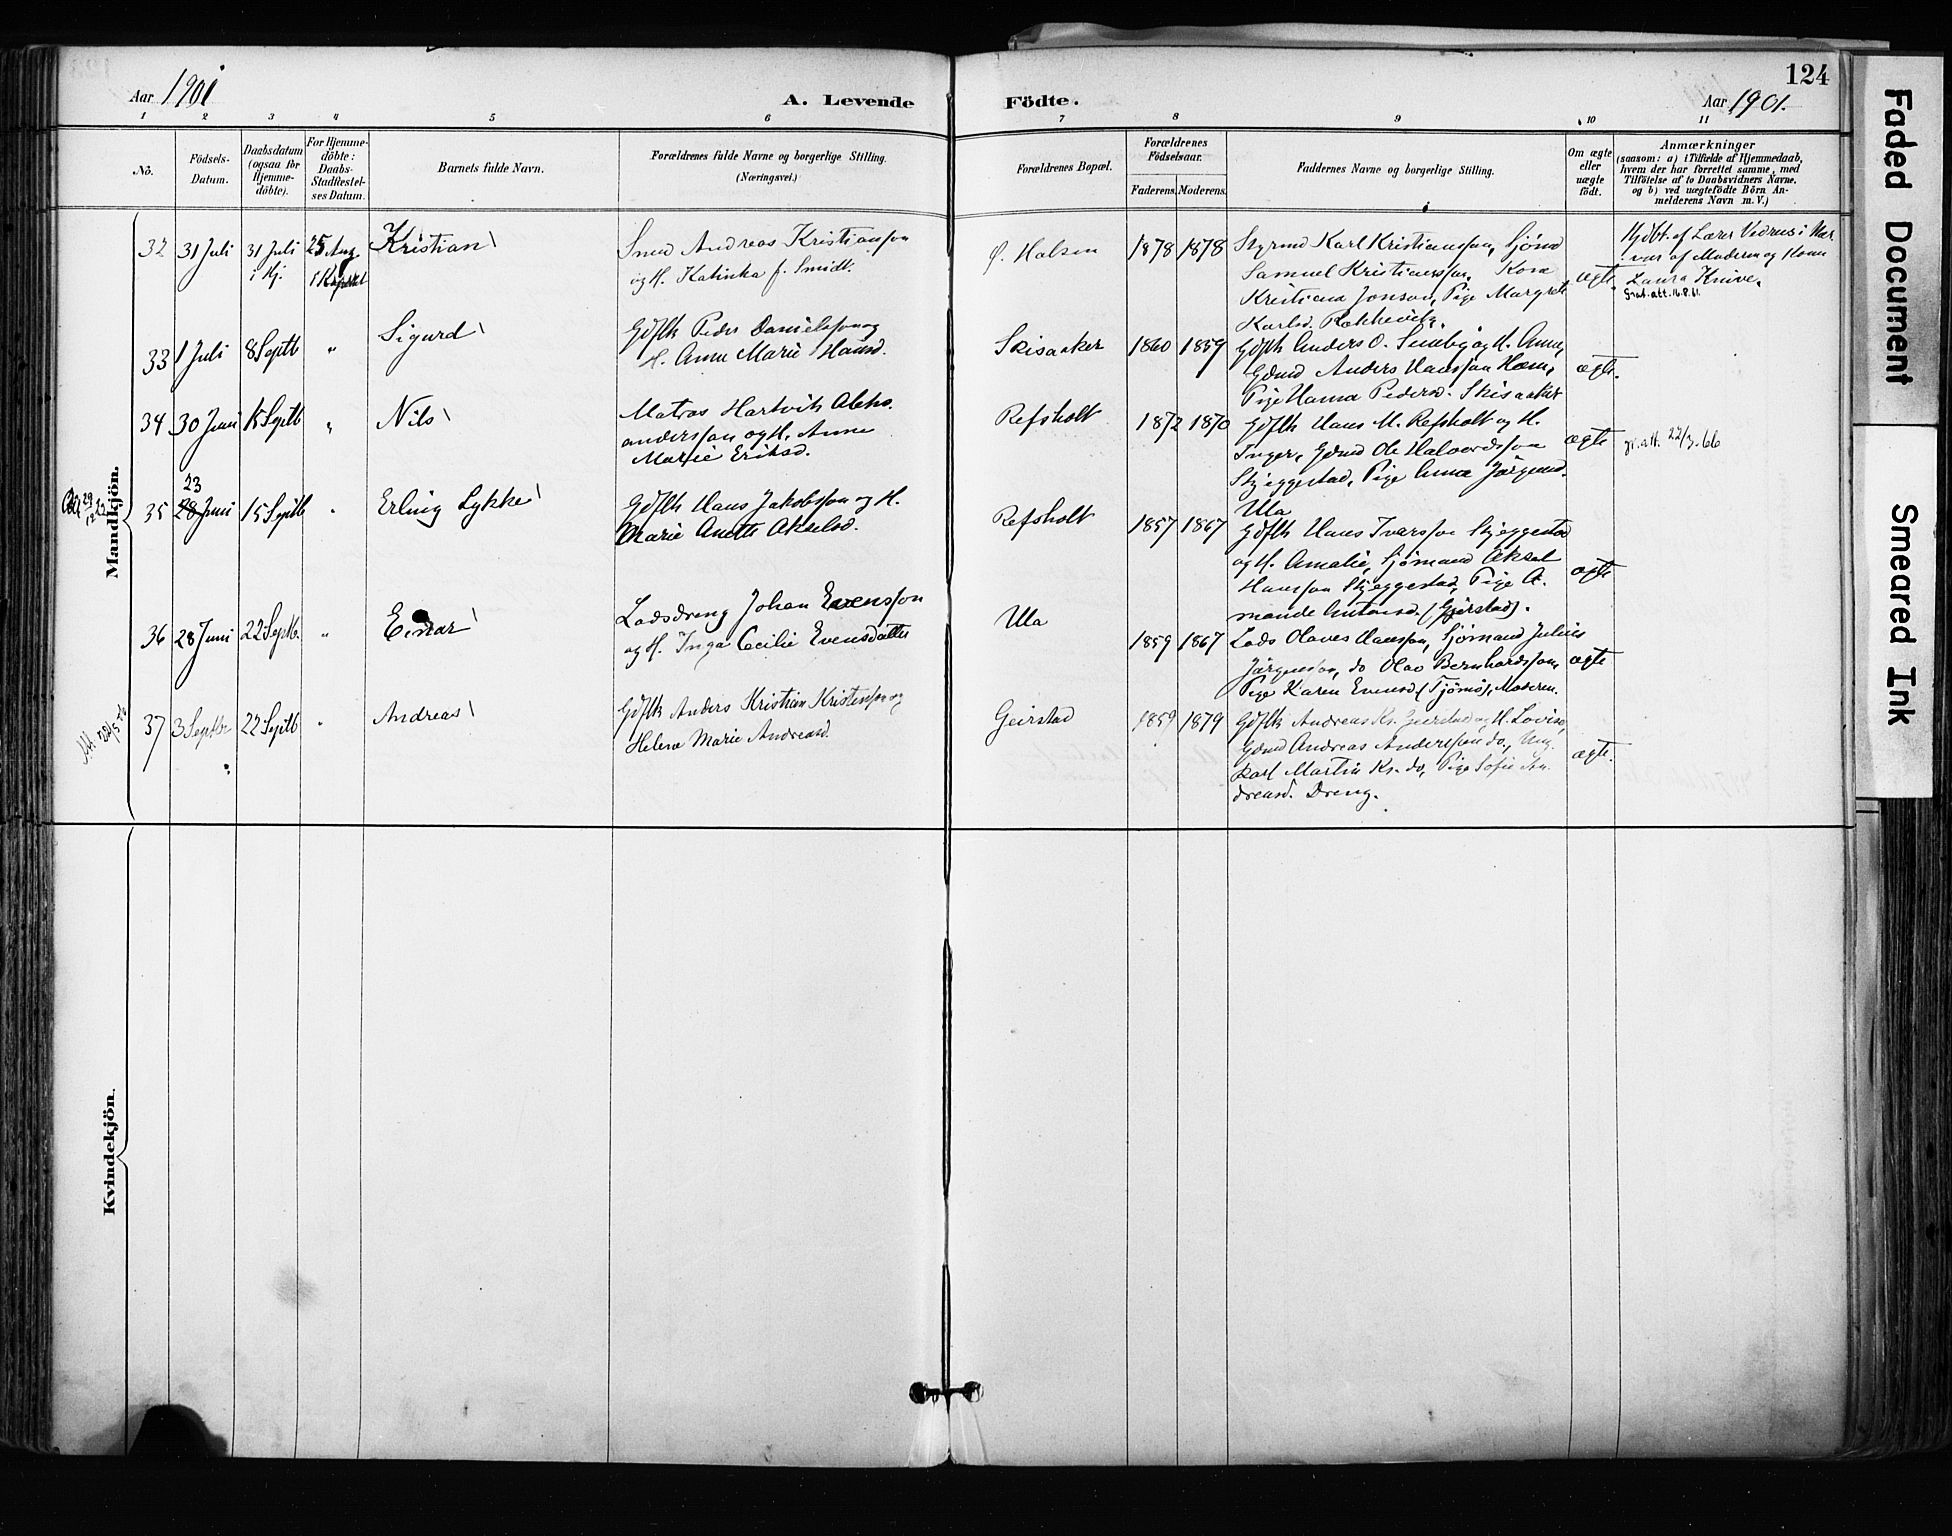 Aar 1901
A. Levende
Födte.
Aar 1901.
124
Faded Document
Smeared Ink
1 2 3 4 5 6 7 8 9 10 11
No.
Födsels-
Datum.
Daabsdatum
(ogsaa for
Hjemme-
döbte).
For Hjemme-
döbte:
Daabs-
Stadfæstel-
ses Datum.
Barnets fulde Navn.
Forældrenes fulde Navne og borgerlige Stilling.
(Næringsvei.)
Forældrenes Bopæl.
Forældrenes
Födselsaar.
Faderens. Moderens.
Faddernes Navne og borgerlige Stilling.
Om ægte
eller
uægte
födt.
Anmærkninger
(saasom: a) i Tilfælde af Hjemmedaab,
hvem der har forrettet samme, med
Tilföielse af to Daabsvidners Navne.
og b) ved uægtefödte Börn An-
melderens Navn m. V.)
Mandkjön.
32
31 Juli
31 Juli
i Hj.
25 Aug
Kristian
Smed Andreas Kristiansson
og H. Katinka f. Smidt.
Ø. Halsen
1878 1878
Styrmd Karl Kristiansson, Sjømd
Samuel Kristiansson, Kona
Kristiana Jonsd, Pige Margrete
Karlsd. Rakkevik.
ægte.
Hjdbt. af Lærer
var af Moderen og Kona
Laura Knive.
att. 16.8.61.
33
1 Juli
8 Septb
"
Sigurd
Gdflk Peder Danielsson og
H. Anne Marie Hansd.
Skisaaker
1860 1859
Gdflk Anders O. Sundby og H. Anna,
Gdmd Anders Hansson Hem,
Pige Hanna Pedersd. Skisaaker
ægte.
34
30 Juni
15 Septb
"
Nils
Matros Hartvik Aleks-
andersson og H. Anne
Marie Eriksd.
Refsholt
1872 1870
Gdflk Hans M. Refsholt og H.
Inger, Gdmd Ole Halvordsson
Skjeggestad, Pige Anna Jörgensd.
Ula
ægte
att. 22/3.66
35
23
28 Juni
15 Septb
"
Erling Lykke
Gdflk Hans Jakobsson og H.
Marie Anette Akselsd.
Refsholt
1857 1867
Gdflk Hans Iversson Skjeggestad
og H. Amalie, Sjømand Aksel
Hansson Skjeggestad, Pige A-
mande Antonsd. (Gjerstad).
ægte
36
28 Juni
22 Septb.
"
Einar
Lodsdreng Johan Evensson
og H. Inga Cecilie Evensdatter
Ula
1859 1867
Lods Olaves Hansson, Sjømand Julius
Jörgensson, do Olav Bernhardsson,
Pige Karen Evensd. (Tjömö), Moderen.
ægte
37
3 Septbr
22 Septb
"
Andreas
Gdflk Anders Kristian Kristensson og
Helene Marie Andreasd.
Geirstad
1859 1879
Gdflk Andreas Kr. Geirstad og H. Lovise,
Gdmd Andreas Andersson do, Ung-
karl Martin Kr. do, Pige Sofie An-
dreasd. Dreng.
ægte.
Kvindekjön.